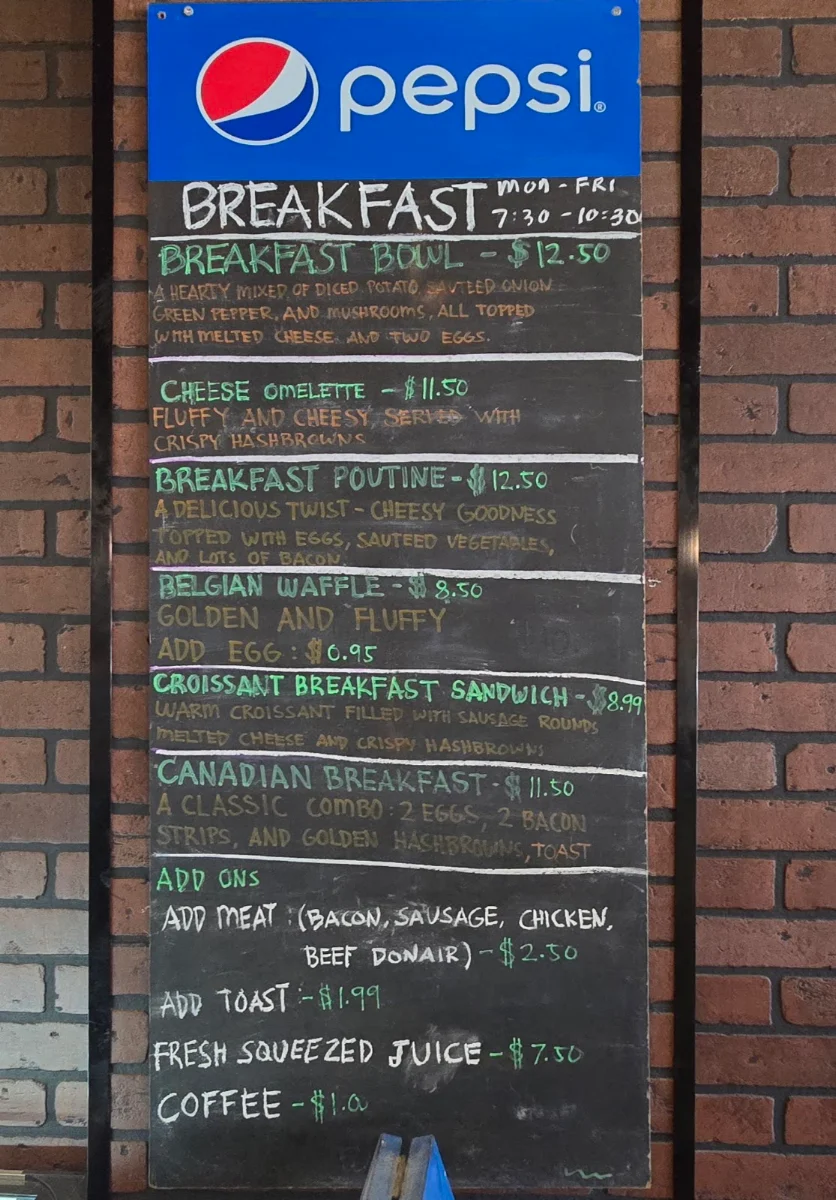 pepsi®
BREAKFAST MON - FRI
7:30 - 10:30
BREAKFAST BOWL - $12.50
A HEARTY MIXED OF DICED POTATO, SAUTEED ONION
GREEN PEPPER, AND MUSHROOMS, ALL TOPPED
WITH MELTED CHEESE AND TWO EGGS.
CHEESE OMELETTE - $11.50
FLUFFY AND CHEESY SERVED WITH
CRISPY HASHBROWNS
BREAKFAST POUTINE - $12.50
A DELICIOUS TWIST - CHEESY GOODNESS
TOPPED WITH EGGS, SAUTEED VEGETABLES,
AND LOTS OF BACON
BELGIAN WAFFLE - $8.50
GOLDEN AND FLUFFY
ADD EGG : $0.95
CROISSANT BREAKFAST SANDWICH - $8.99
WARM CROISSANT FILLED WITH SAUSAGE ROUNDS
MELTED CHEESE AND CRISPY HASHBROWNS
CANADIAN BREAKFAST - $11.50
A CLASSIC COMBO : 2 EGGS, 2 BACON
STRIPS, AND GOLDEN HASHBROWNS, TOAST
ADD ONS
ADD MEAT : (BACON, SAUSAGE, CHICKEN,
BEEF DONAIR) - $2.50
ADD TOAST :- $1.99
FRESH SQUEEZED JUICE - $7.50
COFFEE - $1.00